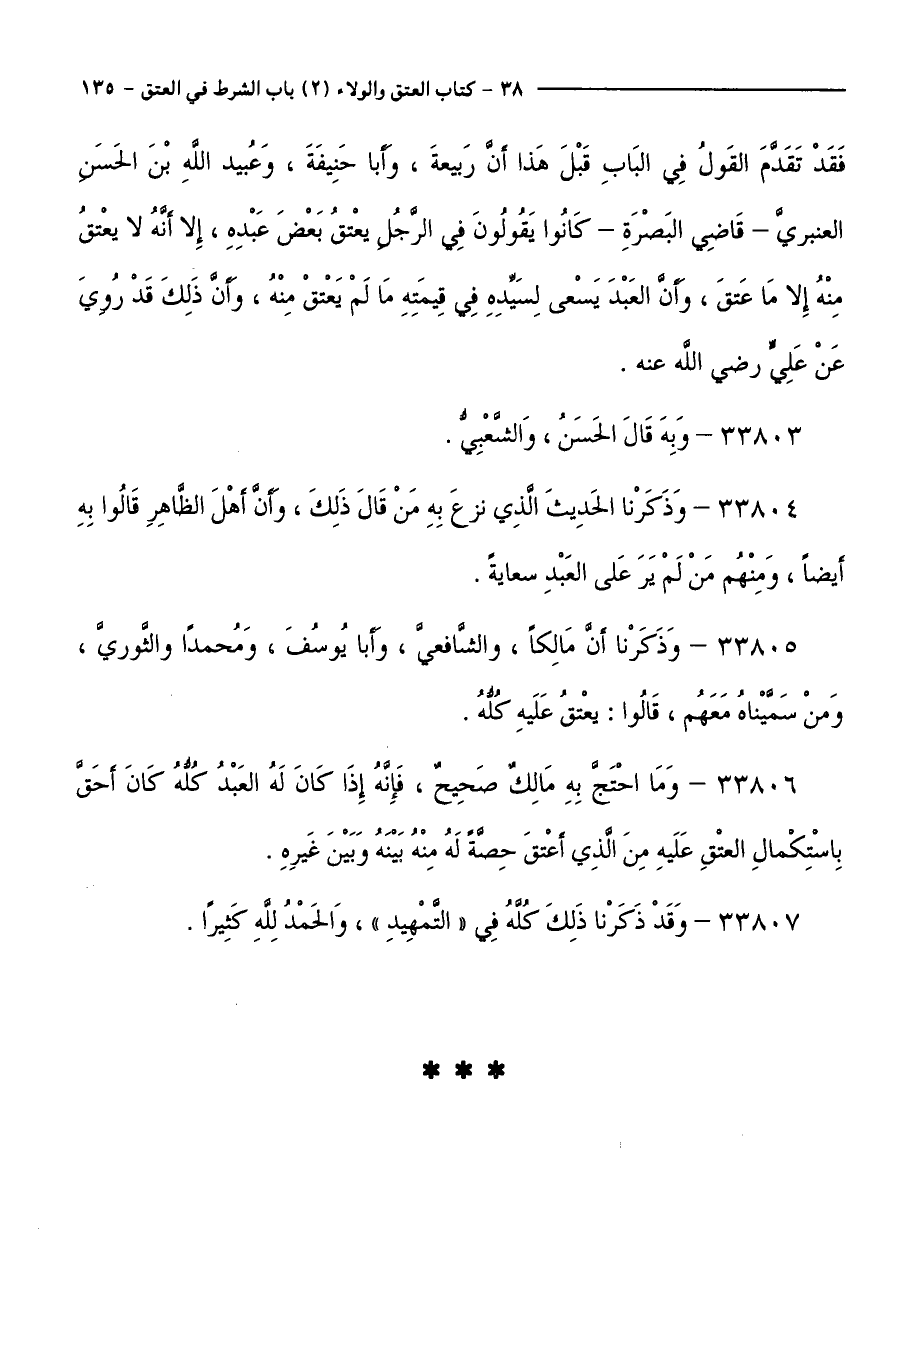 ٣٨ - كتاب العتق والولاء (٢) باب الشرط في العتق - ١٣٥
فَقَدْ تَقَدَّمَ القَولُ فِي البَابِ قَبْلَ هَذا أنَّ رَبيعةَ ، وَأبا حَنِيفَةَ ، وَعُبيد اللَّهِ بْنَ الحَسَنِ
العنبريَّ – قَاضِي البَصْرَةِ – كَانُوا يَقُولُونَ فِي الرَّجُلِ يعْتِقُ بَعْضَ عَبْدِهِ ، إلا أنَّهُ لا يعْتقُ
مِنْهُ إلا مَا عَتقَ ، وَأنَّ العَبْدَ يَسْعى لِسَيِّدِهِ فِي قِيمَتِهِ مَا لَمْ يَعْتقْ مِنْهُ ، وَأنَّ ذَلِكَ قَدْ رُوِيَ
عَنْ عَلِيٍّ رضي اللَّه عنه .
٣٣٨٠٣ – وَبِهَ قَالَ الحَسَنُ ، وَالشَّعْبِيُّ .
٣٣٨٠٤ – وَذَكَرْنا الحَديثَ الَّذِي نزعَ بِهِ مَنْ قَالَ ذَلِكَ ، وَأنَّ أهْلَ الظَّاهِرِ قَالُوا بِهِ
أيضاً ، وَمِنْهُم مَنْ لَمْ يَرَ عَلى العَبْدِ سعايةً .
٣٣٨٠٥ – وَذَكَرْنا أنَّ مَالِكاً ، والشَّافعيَّ ، وَأبا يُوسُفَ ، وَمُحمدًا والثَّوريَّ ،
وَمنْ سَمَّيْناهُ مَعَهُم ، قَالُوا : يعْتقُ عَلَيهِ كُلُّهُ .
٣٣٨٠٦ – وَمَا احْتَجَّ بِهِ مَالِكٌ صَحِيحٌ ، فَإنَّهُ إذَا كَانَ لَهُ العَبْدُ كُلُّهُ كَانَ أحَقَّ
بِاسْتِكْمالِ العتْقِ عَلَيهِ مِنَ الَّذِي أعْتقَ حِصَّةً لَهُ مِنْهُ بَيْنَهُ وَبَيْنَ غَيرِهِ .
٣٣٨٠٧ – وَقَدْ ذَكَرْنا ذَلِكَ كُلَّهُ فِي « التَّمْهِيدِ » ، وَالحَمْدُ لِلَّهِ كَثِيرًا .
* * *